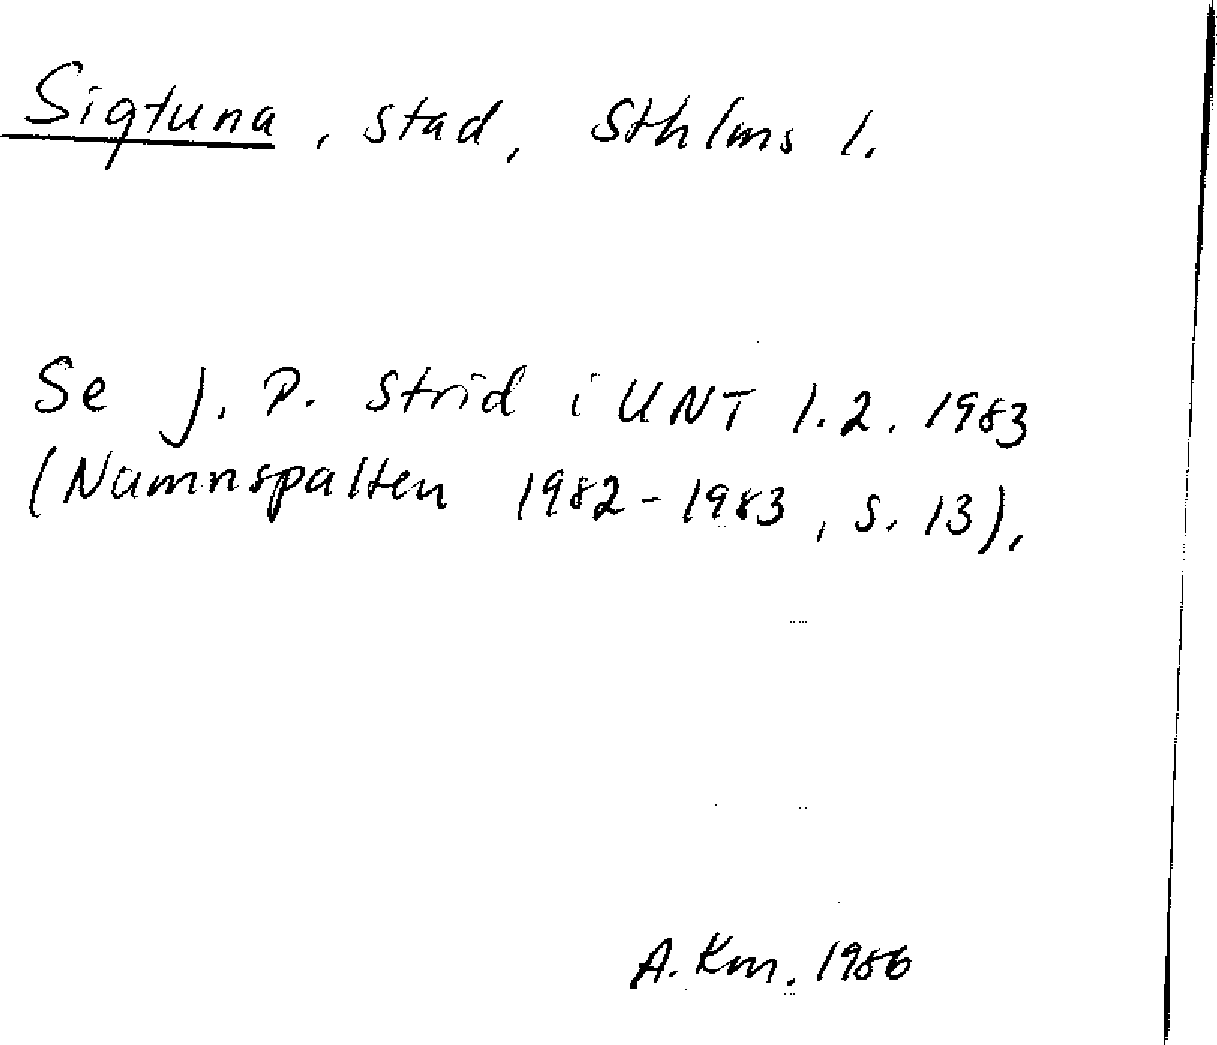 Sigtuna, stad, Sthlms l.
Se J. P. Strid i UNT 1.2. 1983
(Namnspalten 1982-1983, s. 13).
A. Km. 1986